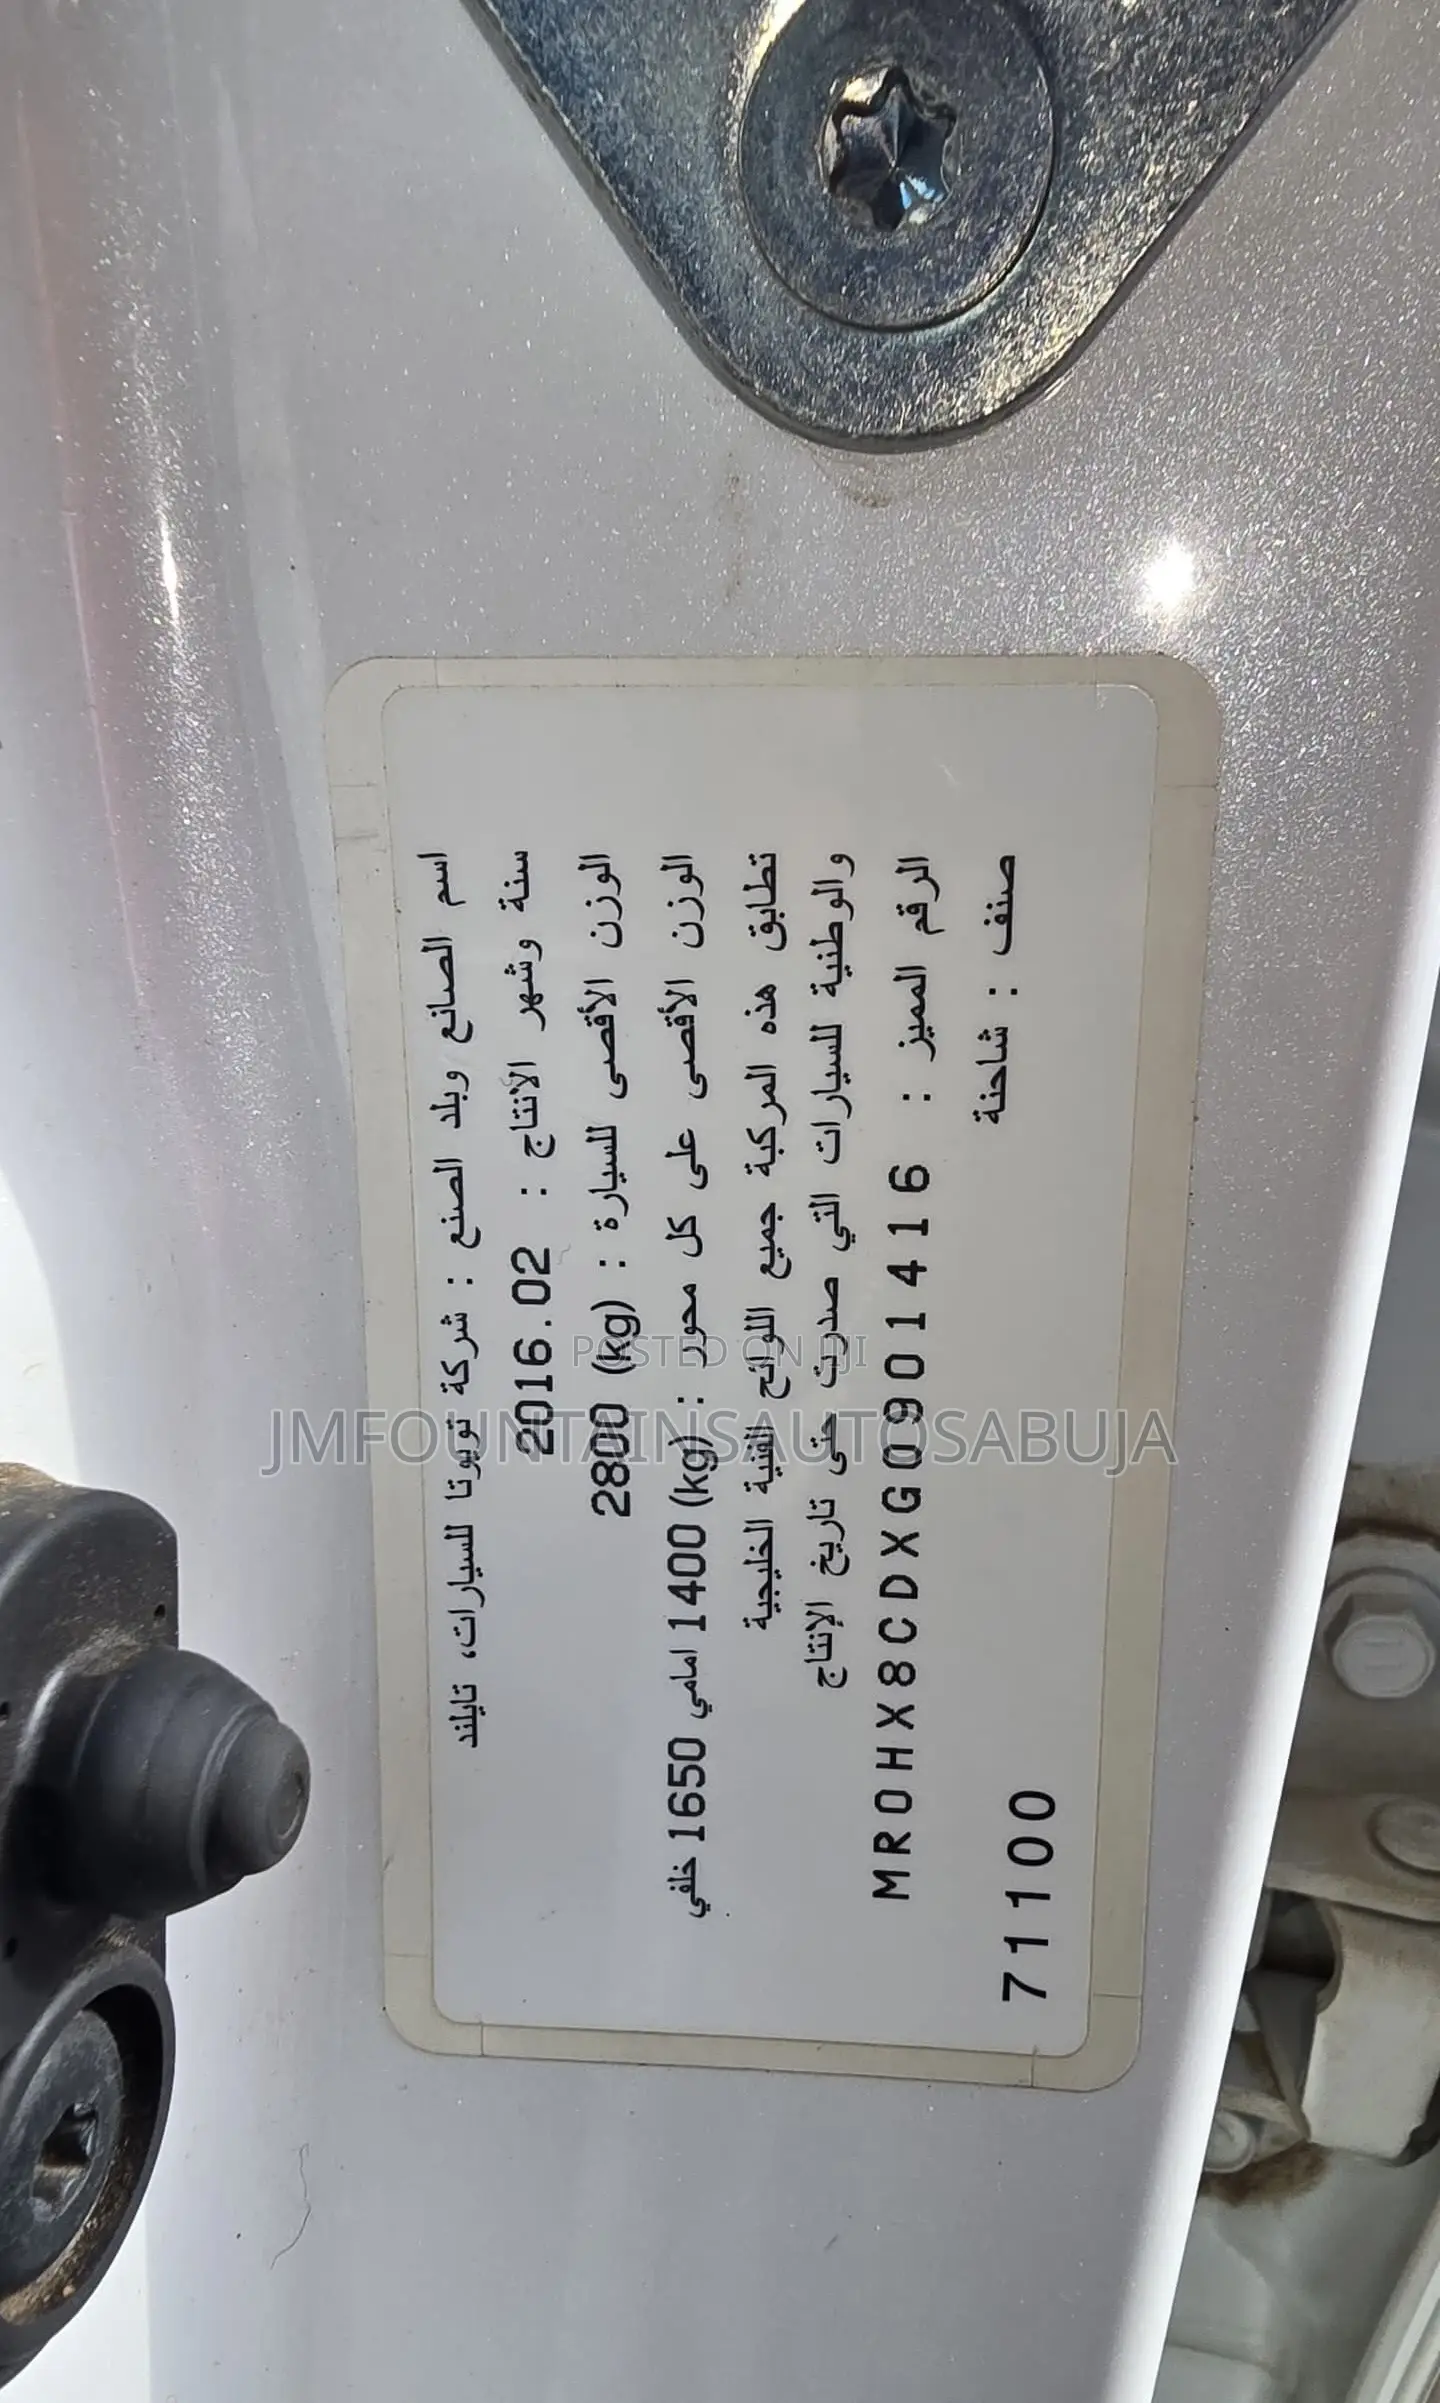 اسم الصانع وبلد الصنع : شركة تويوتا للسيارات، تايلند
سنة وشهر الأنتاج : 2016.02
الوزن الأقصى للسيارة : 2800 (kg)
الوزن الأقصى على كل محور : 1400 (kg) امامي 1650 خلفي
تطابق هذه المركبة جميع اللوائح الفنية الخليجية
والوطنية للسيارات التي صدرت حتى تاريخ الإنتاج
الرقم المميز : MR0HX8CDXG0901416
صنف : شاحنة
71100
POSTED ON JIJI
JMFOUNTAINSAUTOSABUJA